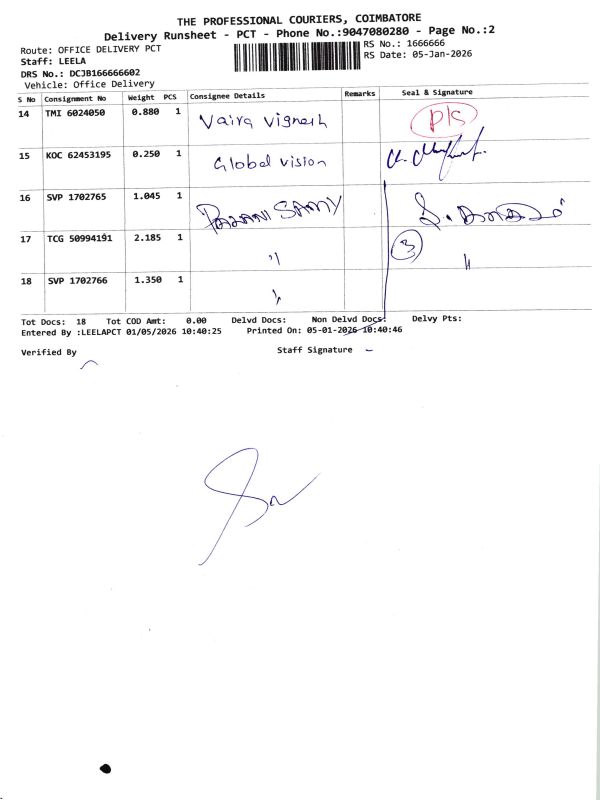 THE PROFESSIONAL COURIERS, COIMBATORE
Delivery Runsheet - PCT - Phone No.:9047080280 - Page No.:2
Route: OFFICE DELIVERY PCT
RS No.: 1666666
Staff: LEELA
RS Date: 05-Jan-2026
DRS No.: DCJB166666602
Vehicle: Office Delivery
S No Consignment No Weight PCS Consignee Details Remarks Seal & Signature
14 TMI 6024050 0.880 1 Vaira Vignesh P/S
15 KOC 62453195 0.250 1 Global vision
16 SVP 1702765 1.045 1 PAZANI SAMY
17 TCG 50994191 2.185 1 " 3 "
18 SVP 1702766 1.350 1 "
Tot Docs: 18 Tot COD Amt: 0.00 Delvd Docs: Non Delvd Docs: Delvy Pts:
Entered By :LEELAPCT 01/05/2026 10:40:25 Printed On: 05-01-2026 10:40:46
Verified By Staff Signature